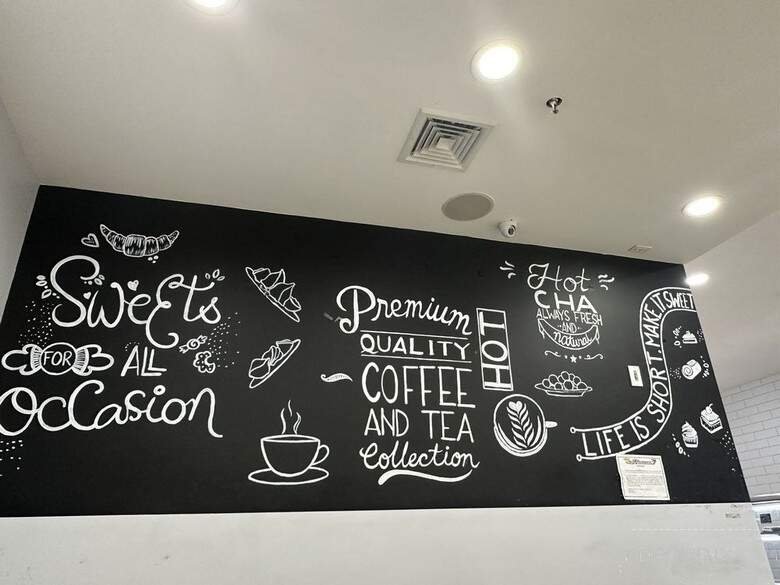 Sweets
FOR ALL
OcCasion
Premium
QUALITY
HOT
COFFEE
AND TEA
Collection
Hot
CHA
ALWAYS FRESH
-AND-
natural
LIFE IS SHORT. MAKE IT SWEET